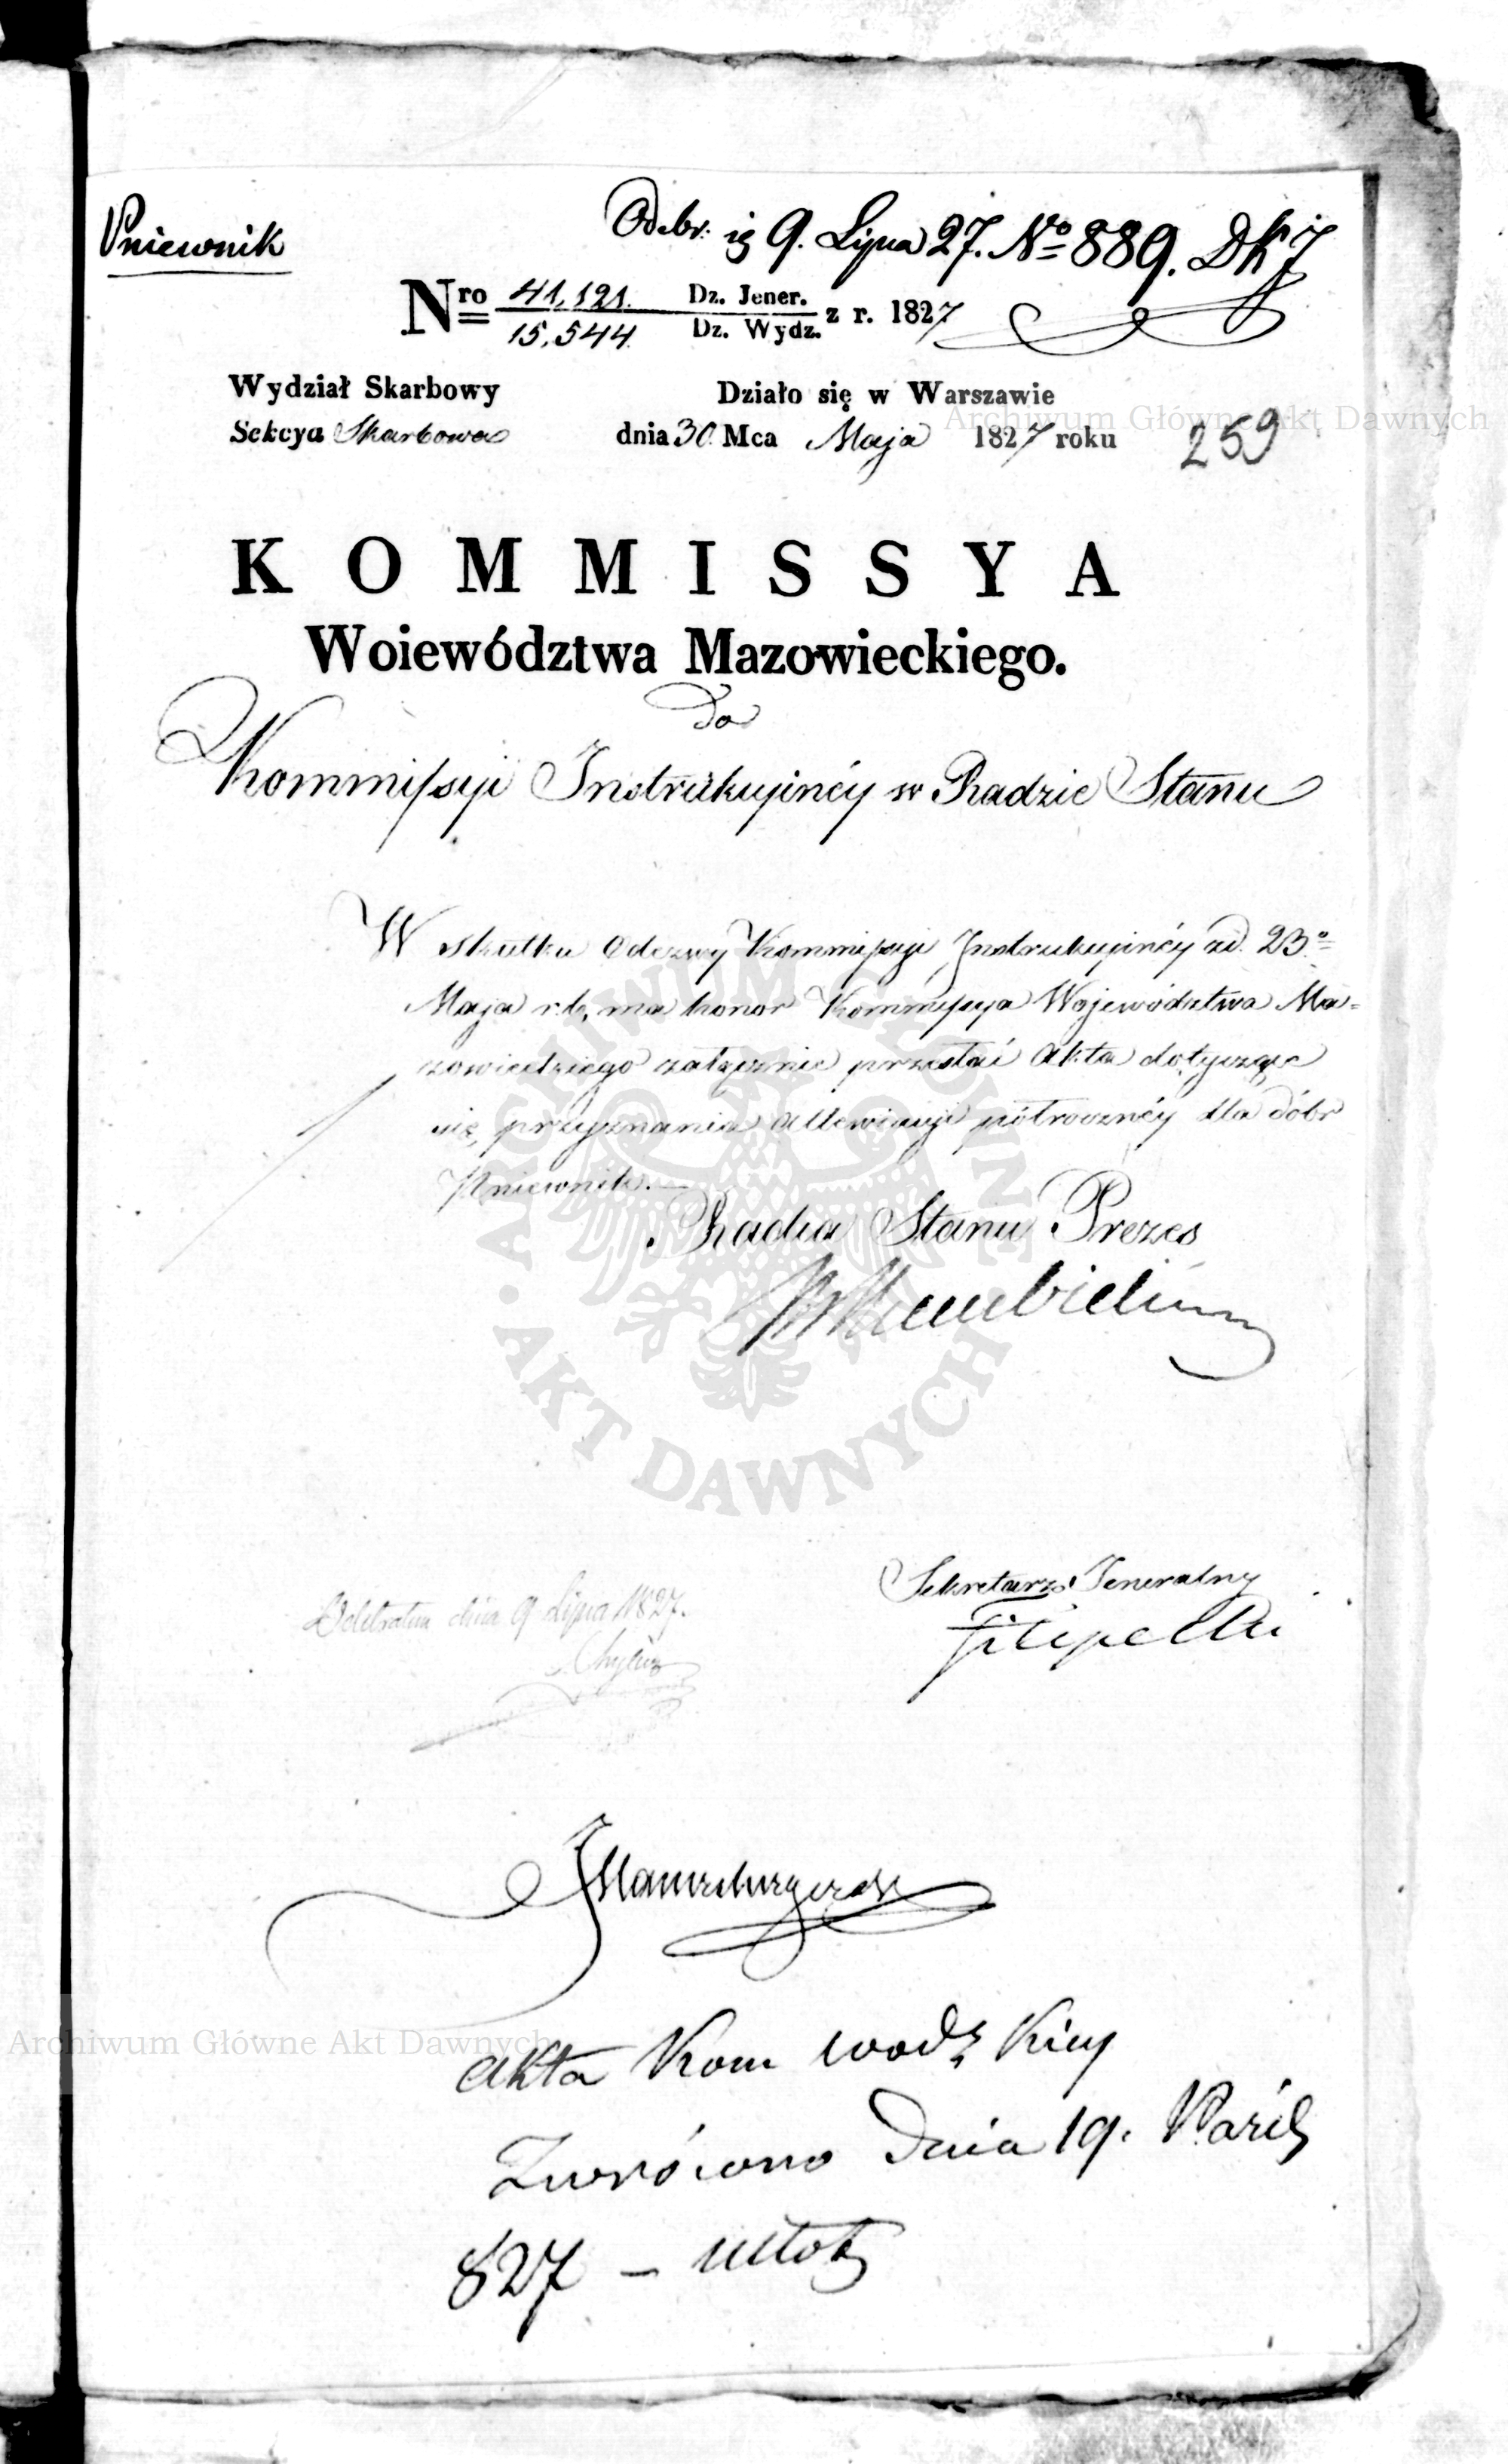 Pniewnik
Odebr. 9. Lipca 27. No 889.
Nro 41,121. Dz. Jener. z r. 1827
15,544 Dz. Wydz.
Wydział Skarbowy Działo się w Warszawie
Sekcya Skarbowa dnia 30. Mca Maja 1827 roku
259
KOMMISSYA
Woiewództwa Mazowieckiego.
Do
Kommissyi Instrukcyinéy w Radzie Stanu
W skutku Odezwy Kommissyi Instrukcyinéy z d. 23.o
Maja r. b. ma honor Kommissya Województwa Ma=
zowieckiego załącznie przesłać Akta dotyczące
się przyznania Allewiacyi półrocznéy dla dóbr
Pniewnik.—
Radca Stanu Prezes
Sekretarz Jeneralny
Filipecki
dnia 9 Lipca 1827.
Akta Kom wodzkiey
Zwrócono Dnia 19. Paźdz
827 —
Archiwum Główne Akt Dawnych
Archiwum Główne Akt Dawnych
ARCHIWUM GŁÓWNE
AKT DAWNYCH